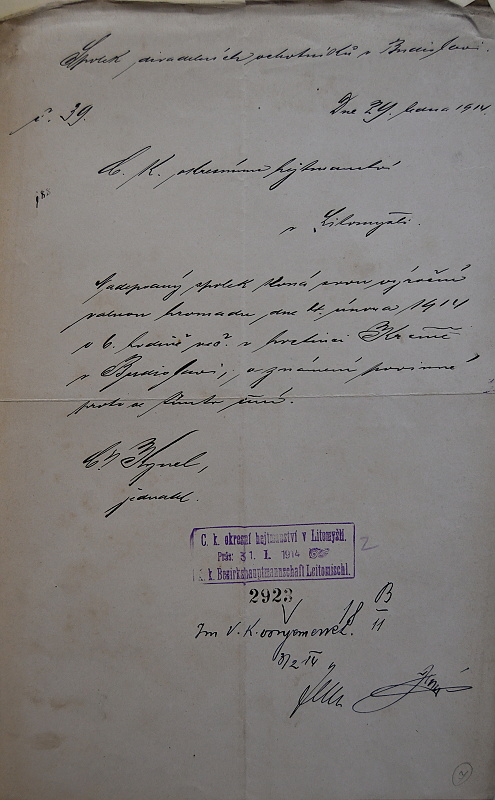 Spolek divadelních ochotníků v Budislavi.
č. 39.
Dne 29. ledna 1914.
C. K. okresnímu hejtmanství
v Litomyšli.
Nadepsaný spolek koná svou výroční
valnou hromadu dne 21. února 1914
o 6. hodině več. v hostinci
v Budislavi, oznámení povinné
proto se tímto činí.
jednatel.
C. k. okresní hejtmanství v Litomyšli.
Prės: 31. I. 1914
k. k. Bezirkshauptmannschaft Leitomischl.
2923
B
II
V. K.
3/2 14
2